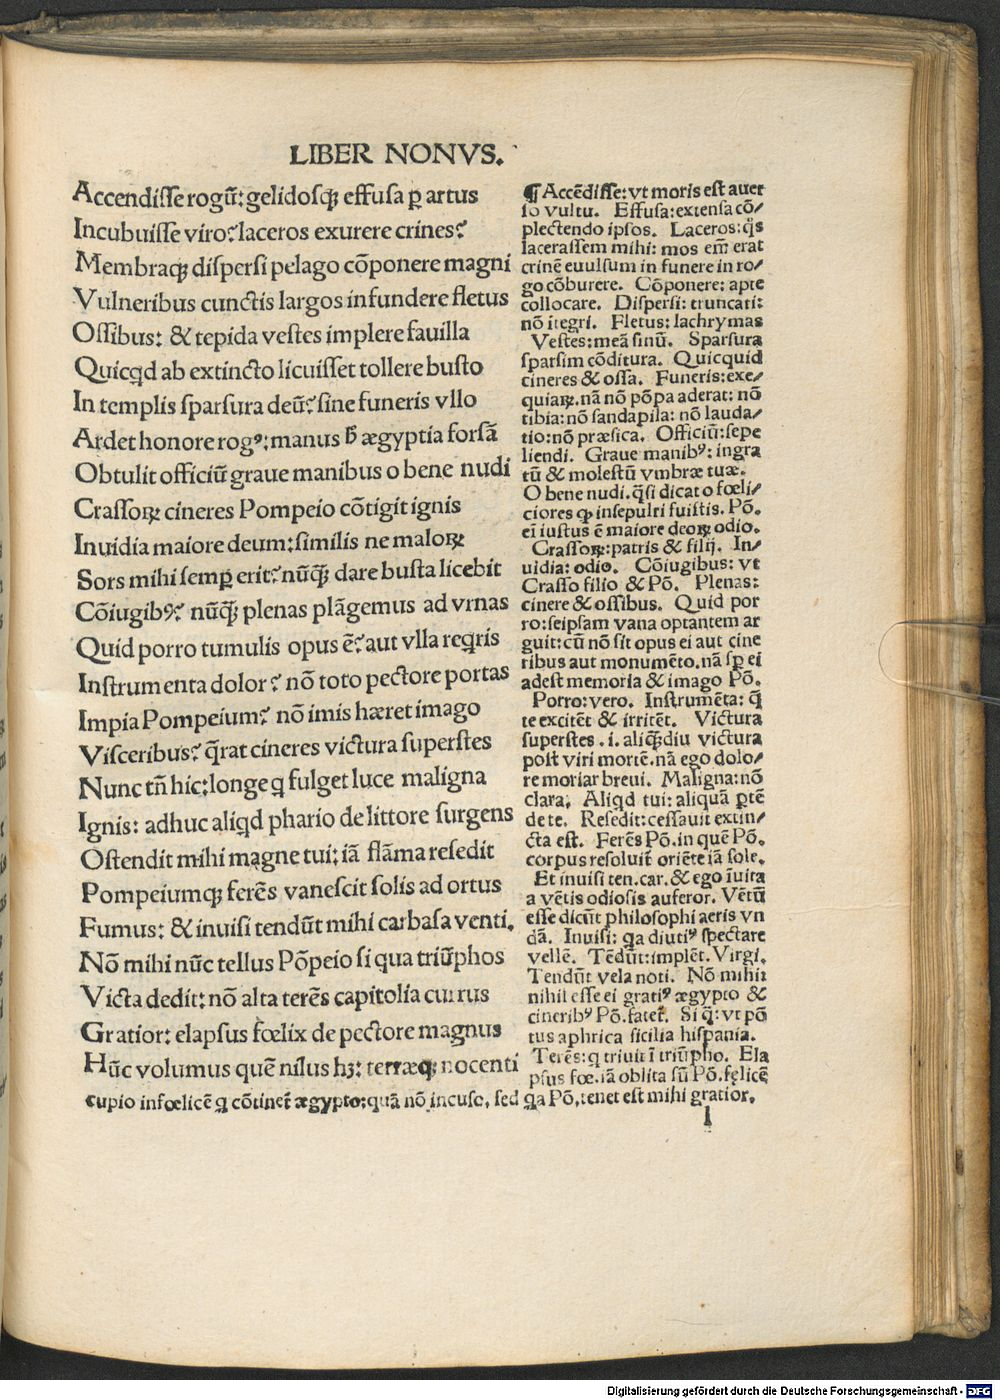 LIBER NONVS.
Accendisse rogũ: gelidosq; effusa ꝑ artus
Incubuisse viro? laceros exurere crines?
Membraq; dispersi pelago cõponere magni
Vulneribus cunctis largos infundere fletus
Ossibus: & tepida vestes implere fauilla
Quicqd ab extincto licuisset tollere busto
In templis sparsura deũ? sine funeris vllo
Ardet honore rogꝰ: manus h̃ ægyptia forsã
Obtulit officiũ graue manibus o bene nudi
Crassoꝝ cineres Pompeio cõtigit ignis
Inuidia maiore deum: similis ne maloꝝ
Sors mihi semꝑ erit? nũq̃; dare busta licebit
Cõiugibꝰ? nũq̃; plenas plãgemus ad vrnas
Quid porro tumulis opus ẽ? aut vlla reqris
Instrumenta dolor? nõ toto pectore portas
Impia Pompeium? nõ imis hæret imago
Visceribus? q̃rat cineres victura superstes
Nunc tñ hic: longe q fulget luce maligna
Ignis: adhuc aliqd phario de littore surgens
Ostendit mihi magne tui: iã flãma resedit
Pompeiumq; ferẽs vanescit solis ad ortus
Fumus: & inuisi tendũt mihi carbasa venti.
Nõ mihi nũc tellus Põpeio si qua triũphos
Victa dedit: nõ alta terẽs capitolia currus
Gratior: elapsus fœlix de pectore magnus
Hũc volumus quẽ nilus hꝫ: terræq; nocenti
¶ Accẽdisse: vt moris est auer
so vultu. Effusa: extensa cõ/
plectendo ipsos. Laceros: q̃s
lacerassem mihi: mos em̃ erat
crinẽ euulsum in funere in ro/
go cõburere. Cõponere: apte
collocare. Dispersi: truncati:
nõ ĩtegri. Fletus: lachrymas
Vestes: meã sinũ. Sparsura
sparsim cõditura. Quicquid
cineres & ossa. Funeris: exe/
quiaꝝ. nã nõ põpa aderat: nõ
tibia: nõ sandapila: nõ lauda/
tio: nõ præfica. Officiũ: sepe
liendi. Graue manibꝰ: ingra
tũ & molestũ vmbræ tuæ.
O bene nudi. q̃si dicat o fœli/
ciores ꝙ insepulti fuistis. Põ.
ei iustus ẽ maiore deoꝝ odio.
Crassoꝝ: patris & filij. In/
uidia: odio. Cõiugibus: vt
Crasso filio & Põ. Plenas:
cinere & ossibus. Quid por
ro: seipsam vana optantem ar
guit: cũ nõ sit opus ei aut cine
ribus aut monumẽto. nã sꝑ ei
adest memoria & imago Põ.
Porro: vero. Instrumẽta: q̃
te excitẽt & irritẽt. Victura
superstes .i. aliq̃;diu victura
post viri mortẽ. nã ego dolo/
re moriar breui. Maligna: nõ
clara. Aliqd tui: aliquã ꝑtẽ
de te. Resedit: cessauit extin/
cta est. Ferẽs Põ. in quẽ Põ.
corpus resoluit̃ oriẽte iã sole.
Et inuisi ten. car. & ego ĩuita
a vẽtis odiosis auferor. Vẽtũ
esse dicũt philosophi aeris vn
dã. Inuisi: qa diutiꝰ spectare
vellẽ. Tẽdũt: implẽt. Virgi.
Tendũt vela noti. Nõ mihi:
nihil esse ei gratiꝰ ægypto &
cineribꝰ Põ. fatet̃. Si q̃: vt põ
tus aphrica sicilia hispania.
Terẽs: q triuit ĩ triũpho. Ela
psus fœ. iã oblita sũ Põ. fęlicẽ
cupio infœlicẽ q cõtinet̃ ægypto: quã nõ incuso, sed qa Põ. tenet est mihi gratior.
l
Digitalisierung gefördert durch die Deutsche Forschungsgemeinschaft - DFG